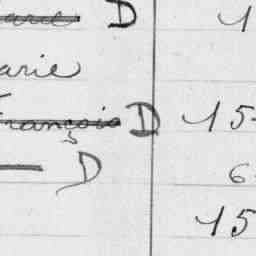 D 1
arie
François D 15
D 6
15